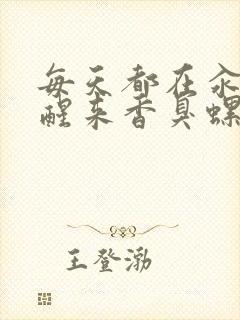 每天都在汆
醒来香臭螺
王登渤